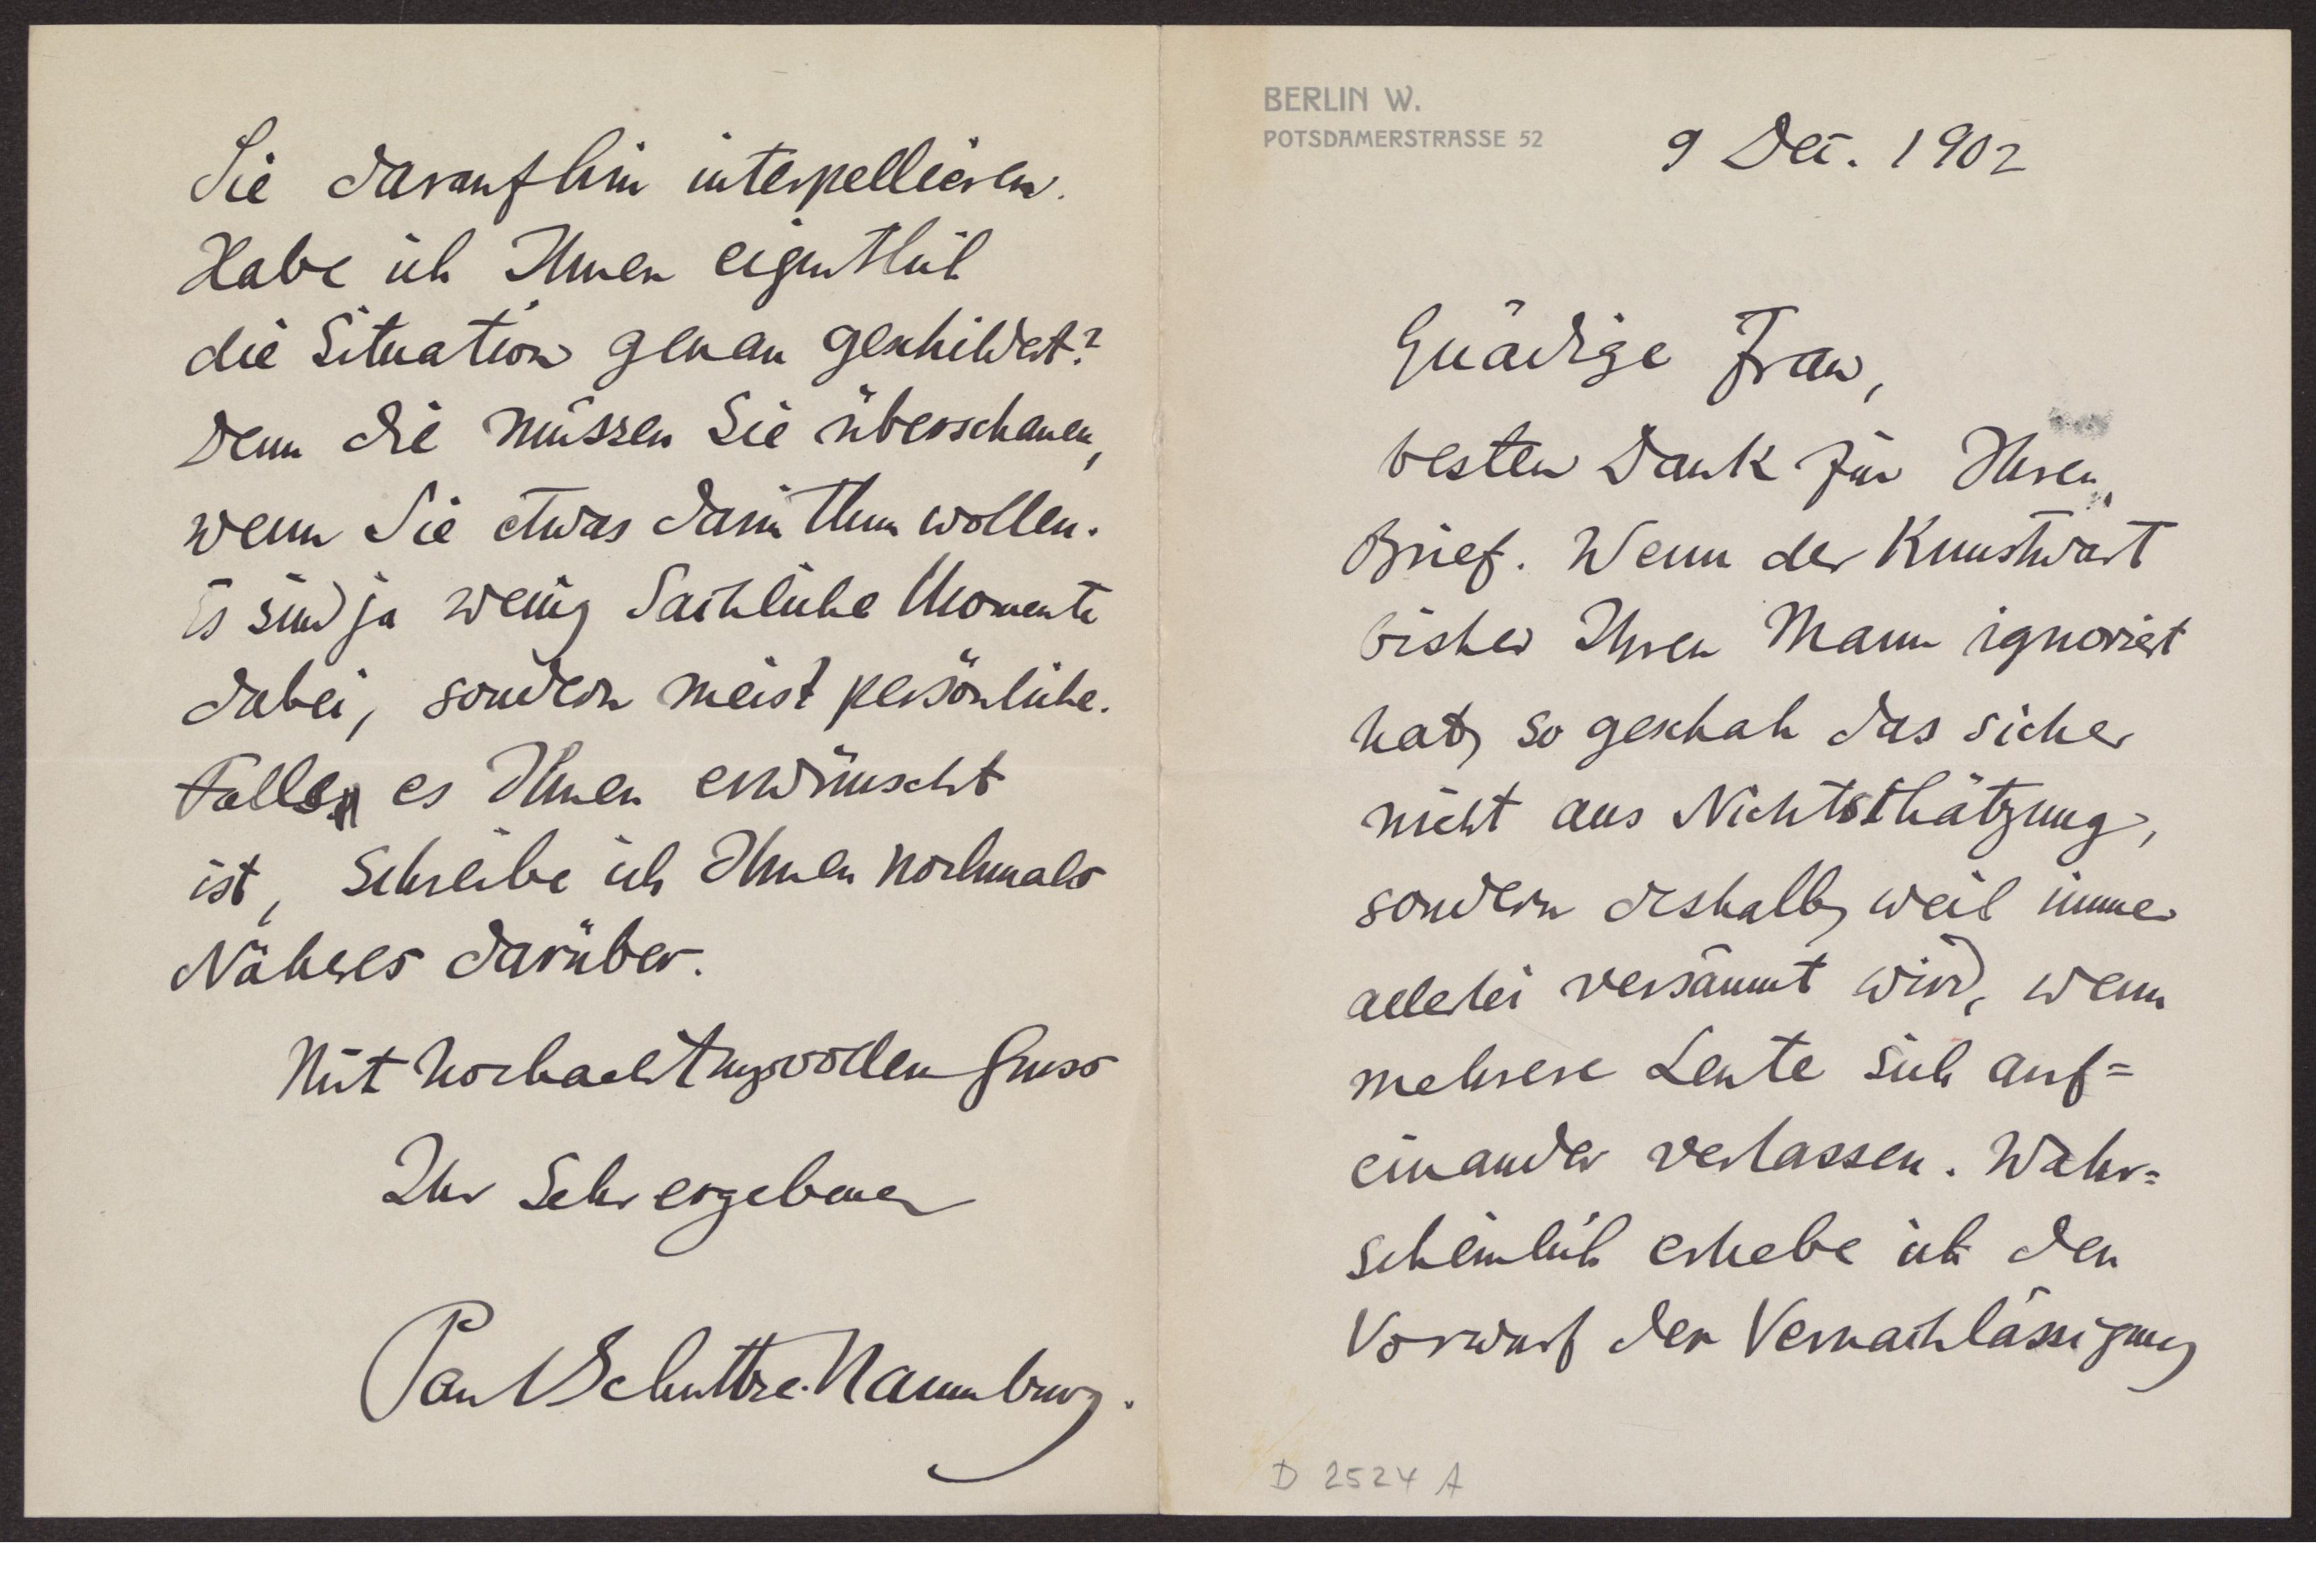 BERLIN W.
POTSDAMERSTRASSE 52
9 Dec. 1902
Gnädige Frau,
besten Dank für Ihren
Brief. Wenn der Kunstwart
bisher Ihren Mann ignoriert
hat, so geschah das sicher
nicht aus Nichtschätzung,
sondern deshalb, weil immer
allerlei versäumt wird, wenn
mehrere Leute sich auf=
einander verlassen. Wahr=
scheinlich erhebe ich den
Vorwurf der Vernachlässigung
D 2524 A
Sie daraufhin interpellieren.
Habe ich Ihnen eigentlich
die Situation genau geschildert?
Denn die müssen Sie überschauen,
wenn Sie etwas darin thun wollen.
Es sind ja wenig sachliche Momente
dabei, sondern meist persönliche.
Falls es Ihnen erwünscht
ist, schreibe ich Ihnen nochmals
Näheres darüber.
Mit hochachtungsvollem Gruss
Ihr sehr ergebener
Paul Schultze-Naumburg.